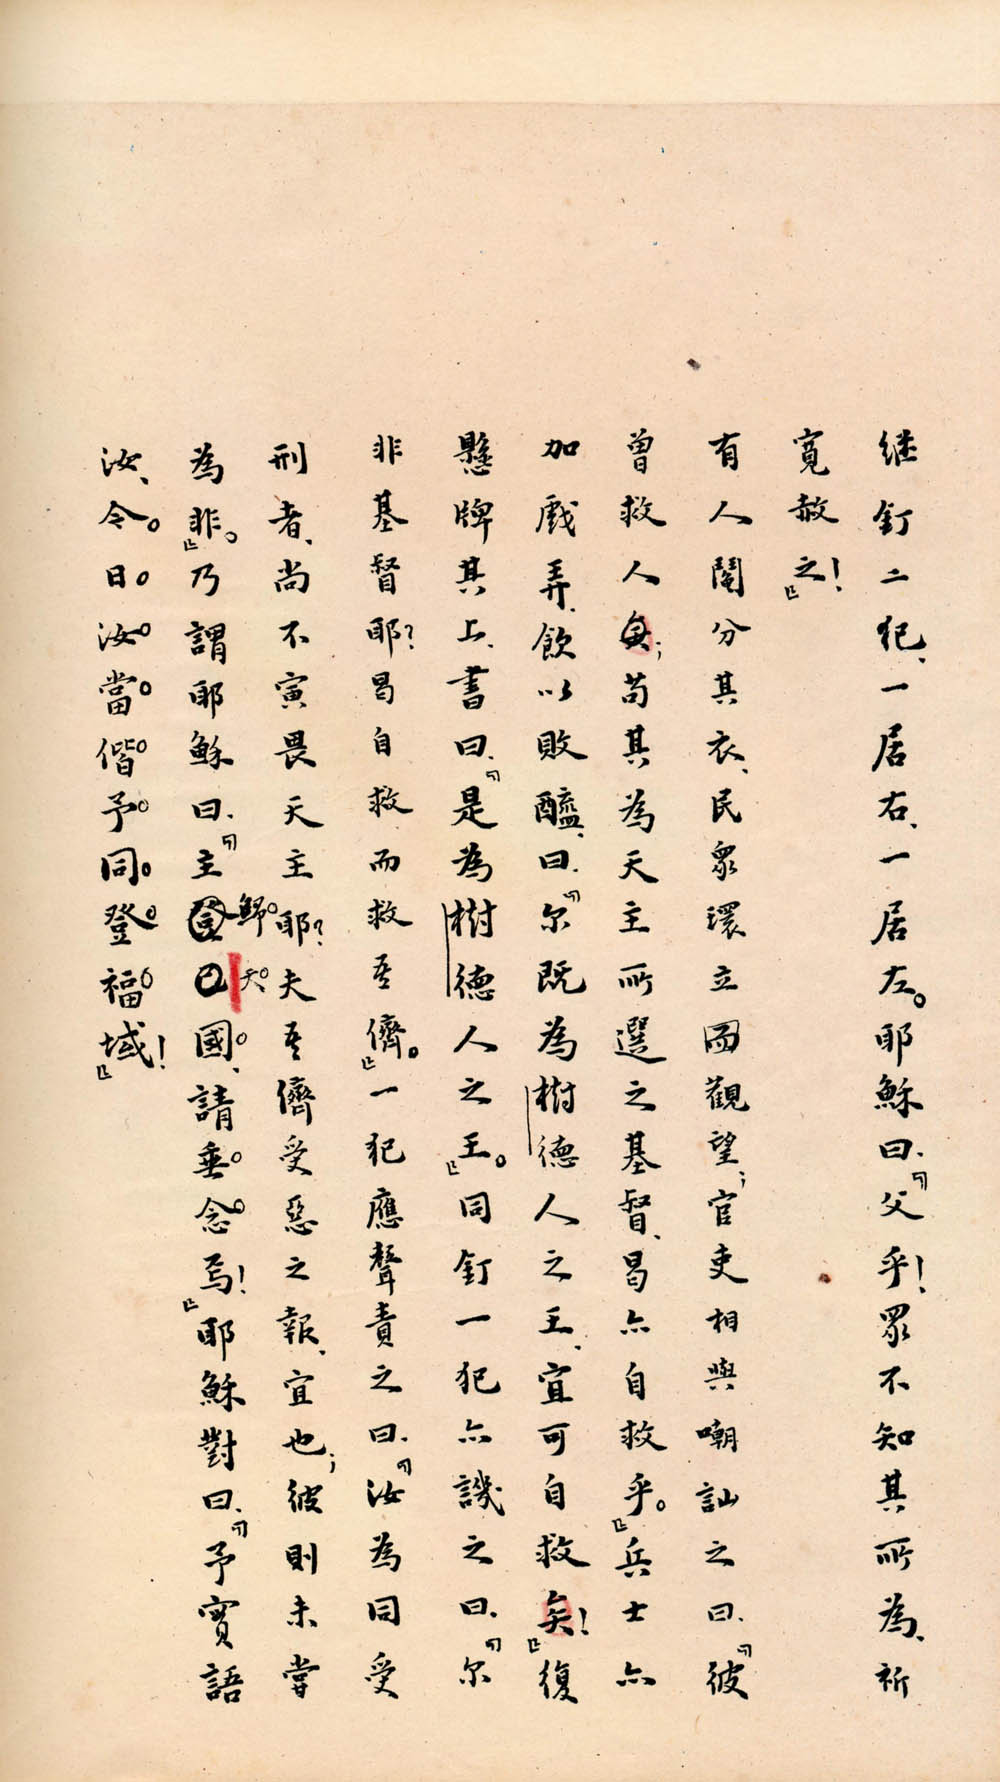 继釘二犯、一居右、一居左。耶穌曰、『父乎!眾不知其所為、祈
寬赦之!』
有人鬮分其衣、民眾環立而觀望;官吏相與嘲訕之曰、『彼
曾救人矣;苟其為天主所選之基督、曷亦自救乎。』兵士亦
加戲弄、飲以敗醯、曰、『尔既為樹德人之王、宜可自救矣!』復
懸牌其上、書曰、『是為樹德人之王。』同釘一犯亦譏之曰、『尔
非基督耶?曷自救而救吾儕。』一犯應聲責之曰、『汝為同受
刑者、尚不寅畏天主耶?夫吾儕受惡之報、宜也;彼則未嘗
為非。』乃謂耶穌曰、『主歸天國、請垂念焉!』耶穌對曰、『予實語
汝、今日汝當偕予同登福域!』